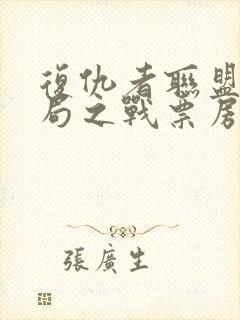 復仇者聯盟
局之戰票房
張廣生